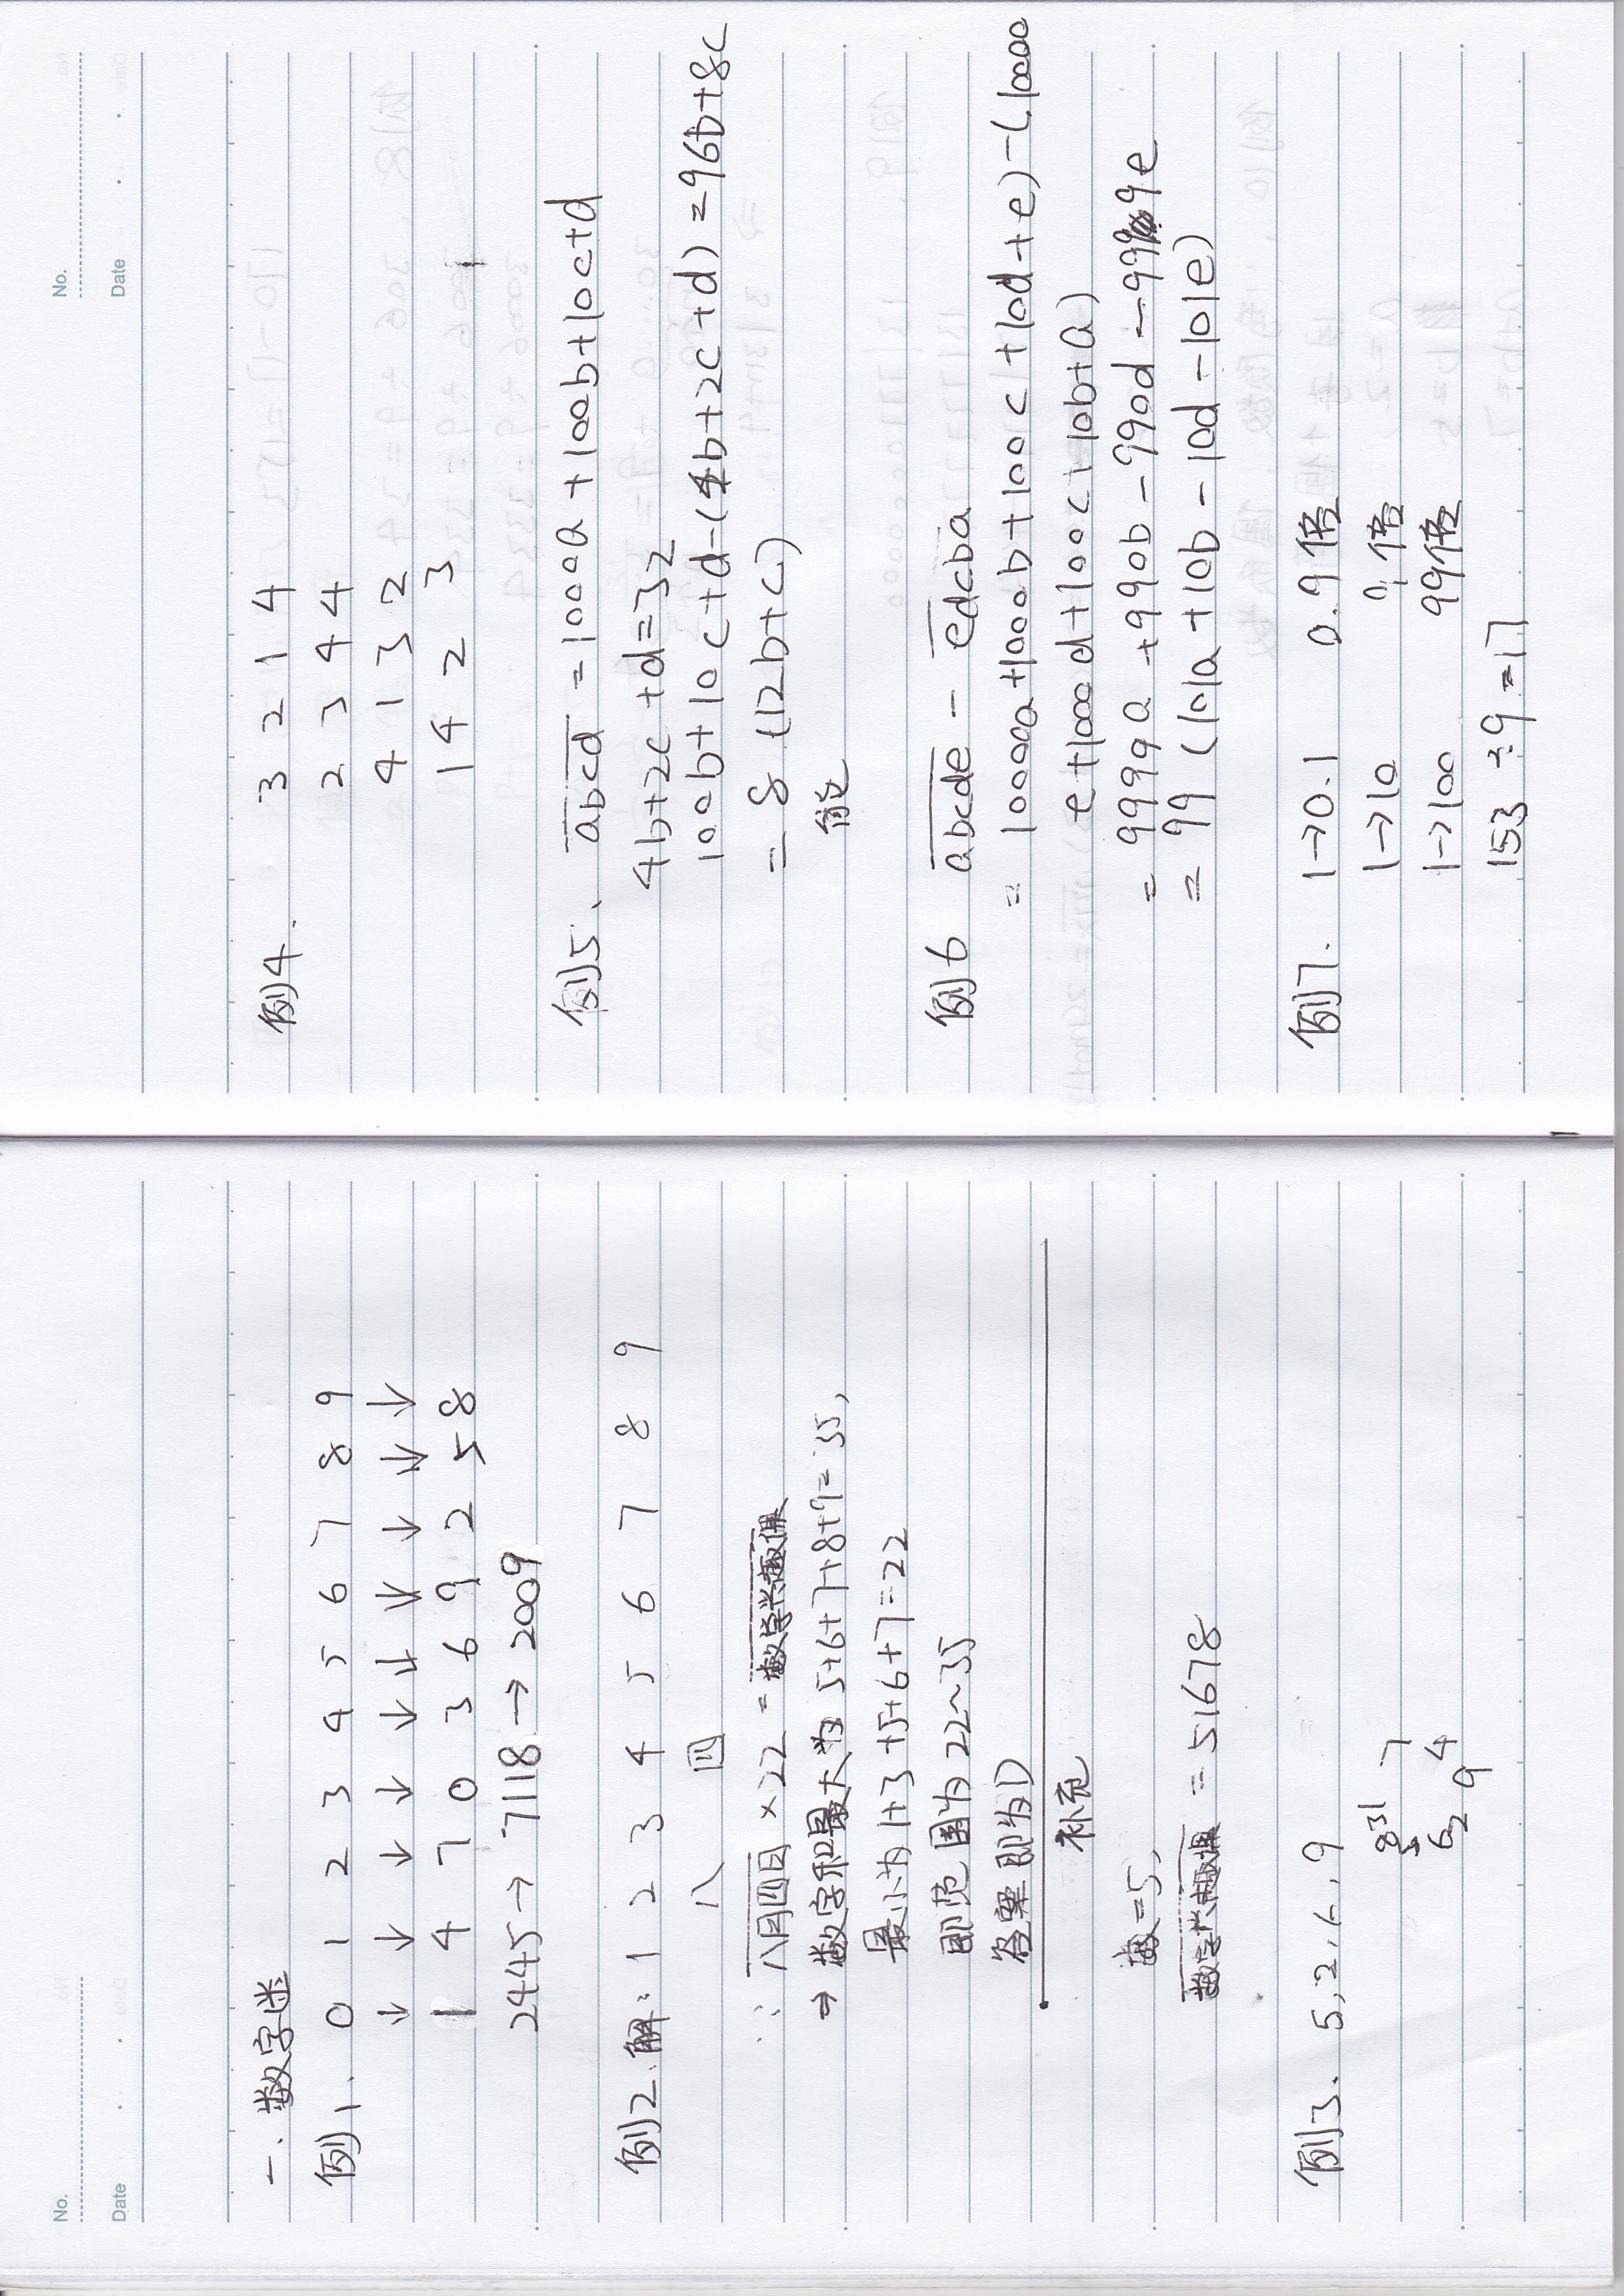 No.
Date
一、数字迷
例1、 0 1 2 3 4 5 6 7 8 9
↓ ↓ ↓ ↓ ↓ ↓ ↓ ↓ ↓ ↓
1 4 7 0 3 6 9 2 5 8
2445→7118→2009
例2、解: 1 2 3 4 5 6 7 8 9
八 四
∵ 八月四日×22=数学兴趣课
⇒ 数字和最大为5+6+7+8+9=35,
最小为1+3+5+6+7=22
即范围为22~35
答案即为D
补充
数=5,
数学兴趣课=51678
例3. 5,2,6,9
8 3 1 7
5 6 4
2 9
No.
Date
例4. 3 2 1 4
2 3 4 4
4 1 3 2
1 4 2 3
1
例5、abcd=1000a+100b+10c+d
4b+2c+d=32
100b+10c+d-(4b+2c+d)=96b+8c
=8(12b+c)
能
例6 abcde-edcba
=10000a+1000b+100c+10d+e)-(10000
e+1000d+100c+10b+a)
=9999a+990b-990d-9999e
=99(101a+10b-10d-101e)
例7. 1→0.1 0.9倍
1→10 9倍
1→100 99倍
153÷9=17